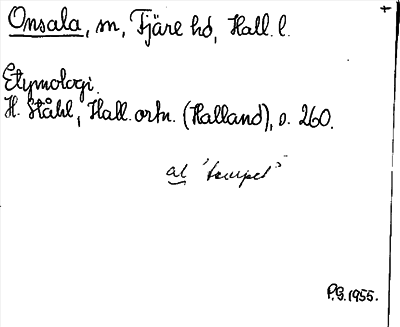 Onsala, sn, Fjäre hd, Hall. l.
Etymologi.
H. Ståhl, Hall. ortn. (Halland), s. 260.
al "tempel"
P.G. 1955.